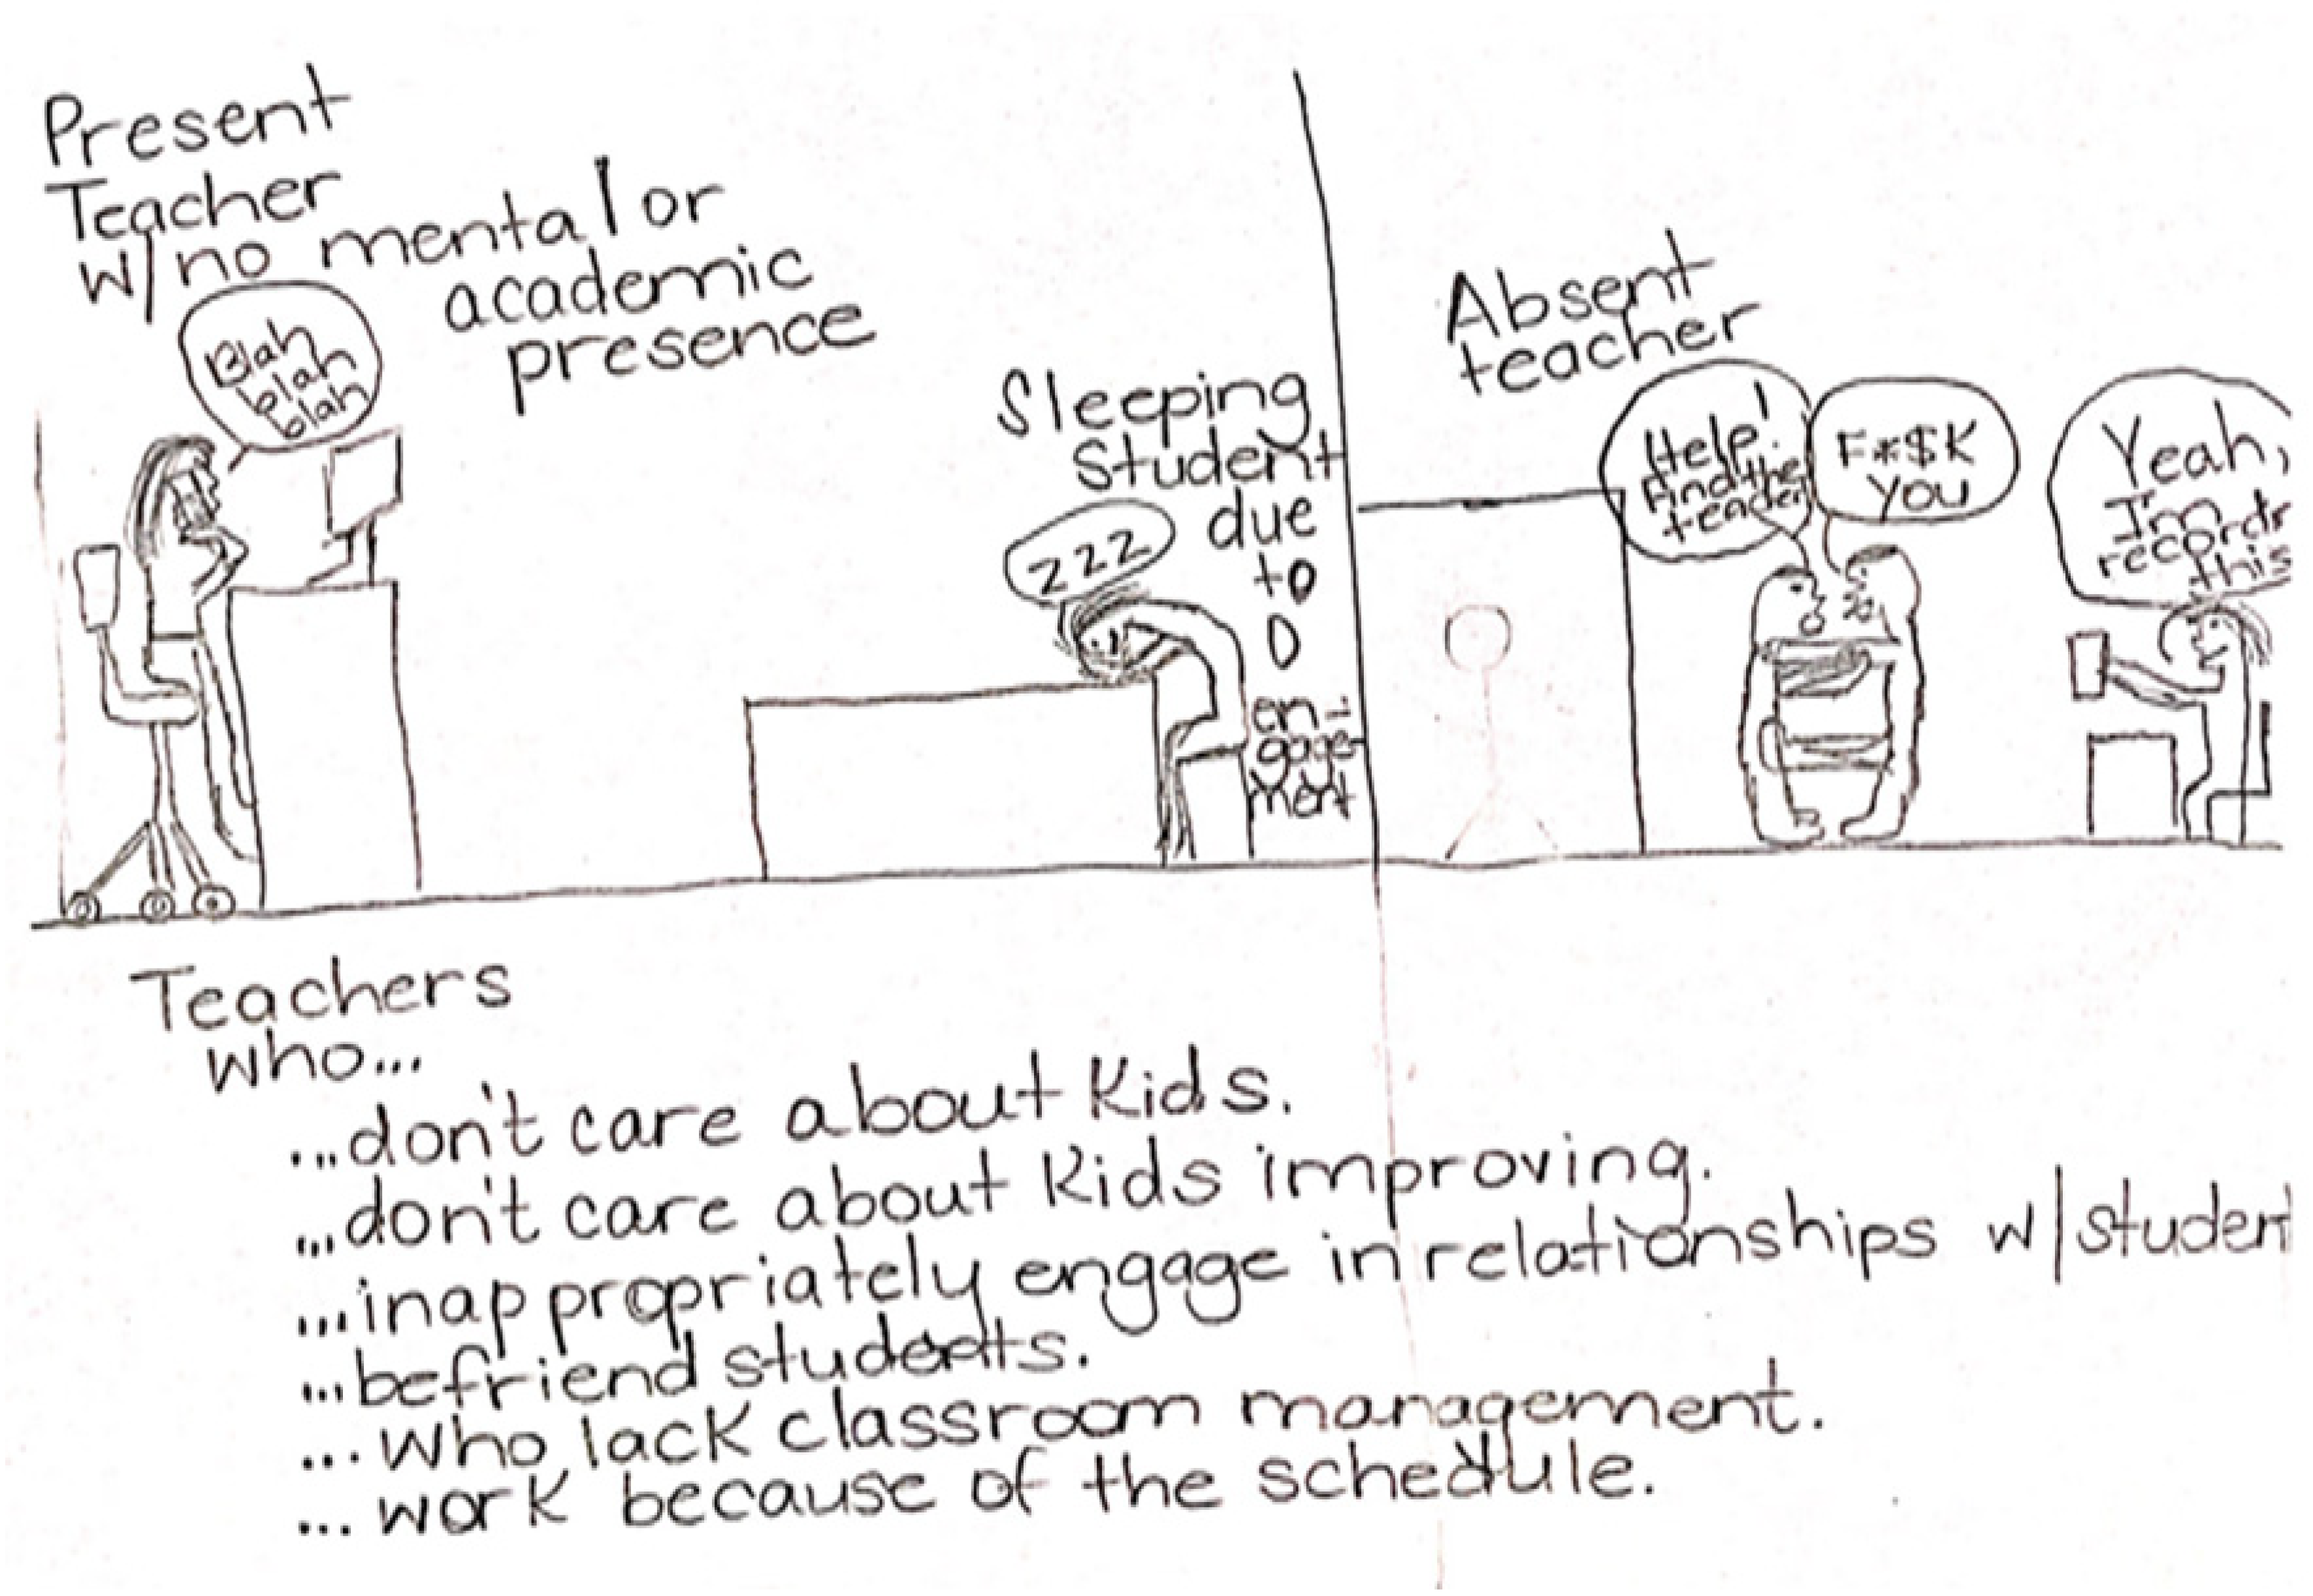 Present
Teacher
w/no mental or
academic
presence
Blah
blah
blah
Sleeping
Student
due
to
0
en-
gage-
ment
zzz
Absent
teacher
Help!
find the
teacher
F*$K
you
Yeah,
I'm
recordi
this
Teachers
who...
...don't care about kids.
...don't care about kids improving.
...inappropriately engage in relationships w/student
...befriend students.
...who lack classroom management.
...work because of the schedule.